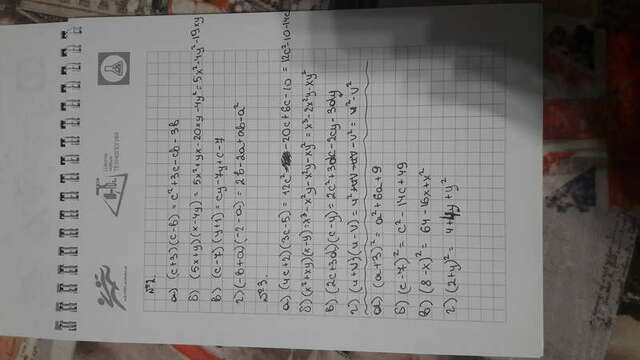 Школа
новых
ТЕХНОЛОГИЙ
№2.
а) (c+3)(c-b) = c²+3c-cb-3b
б) (5x+y)(x-4y) = 5x²+yx-20xy-4y² = 5x²-4y²-19xy
в) (c-7)(y+1) = cy-7y+c-7
г) (-b+a)(-2-a) = 2b-2a+ab-a²
№3.
а) (4c+2)(3c-5) = 12c² -20c+6c-10 = 12c²-10-14c
б) (x²+xy)(x-y) = x³-x²y-x²y-xy² = x³-2x²y-xy²
в) (2c+3d)(c-y) = 2c²+3dc-2cy-3dy
г) (u+v)(u-v) = u²+uv-uv-v² = u²-v²
а) (a+3)² = a²+6a+9
б) (c-7)² = c²-14c+49
в) (8-x)² = 64-16x+x²
г) (2+y)² = 4+4y+y²